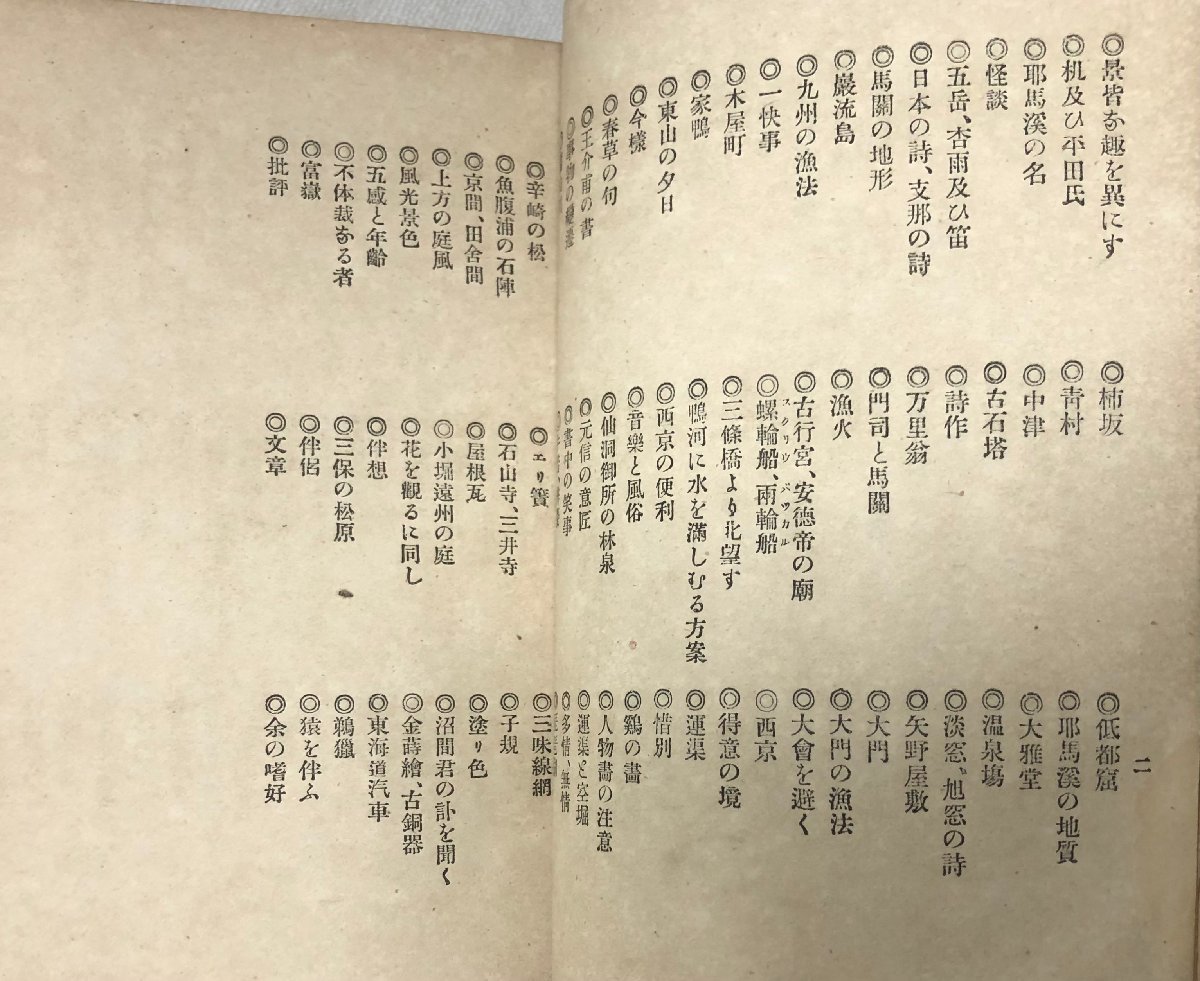 二
◎景皆な趣を異にす ◎柿坂 ◎低都窟
◎机及ひ平田氏 ◎靑村 ◎耶馬溪の地質
◎耶馬溪の名 ◎中津 ◎大雅堂
◎怪談 ◎古石塔 ◎温泉塲
◎五岳、杏雨及ひ笛 ◎詩作 ◎淡窓、旭窓の詩
◎日本の詩、支那の詩 ◎万里翁 ◎矢野屋敷
◎馬關の地形 ◎門司と馬關 ◎大門
◎巖流島 ◎漁火 ◎大門の漁法
◎九州の漁法 ◎古行宮、安德帝の廟 ◎大會を避く
◎一快事 ◎螺輪船、兩輪船 ◎西京
◎木屋町 ◎三條橋より北望す ◎得意の境
◎家鴨 ◎鴨河に水を滿しむる方案 ◎運渠
◎東山の夕日 ◎西京の便利 ◎惜別
◎今樣 ◎音樂と風俗 ◎鷄の畵
◎春草の句 ◎仙洞御所の林泉 ◎人物畵の注意
◎王介甫の書 ◎元信の意匠 ◎運渠と空堀
◎事物の變遷 ◎書中の笑事 ◎多情、無情
◎辛崎の松 ◎エリ簀 ◎三味線網
◎魚腹浦の石陣 ◎石山寺、三井寺 ◎子規
◎京間、田舍間 ◎屋根瓦 ◎塗り色
◎上方の庭風 ◎小堀遠州の庭 ◎沼間君の訃を聞く
◎風光景色 ◎花を觀るに同し ◎金蒔繪、古銅器
◎五感と年齡 ◎伴想 ◎東海道汽車
◎不体裁なる者 ◎三保の松原 ◎鵜獵
◎富嶽 ◎伴侶 ◎猿を伴ふ
◎批評 ◎文章 ◎余の嗜好